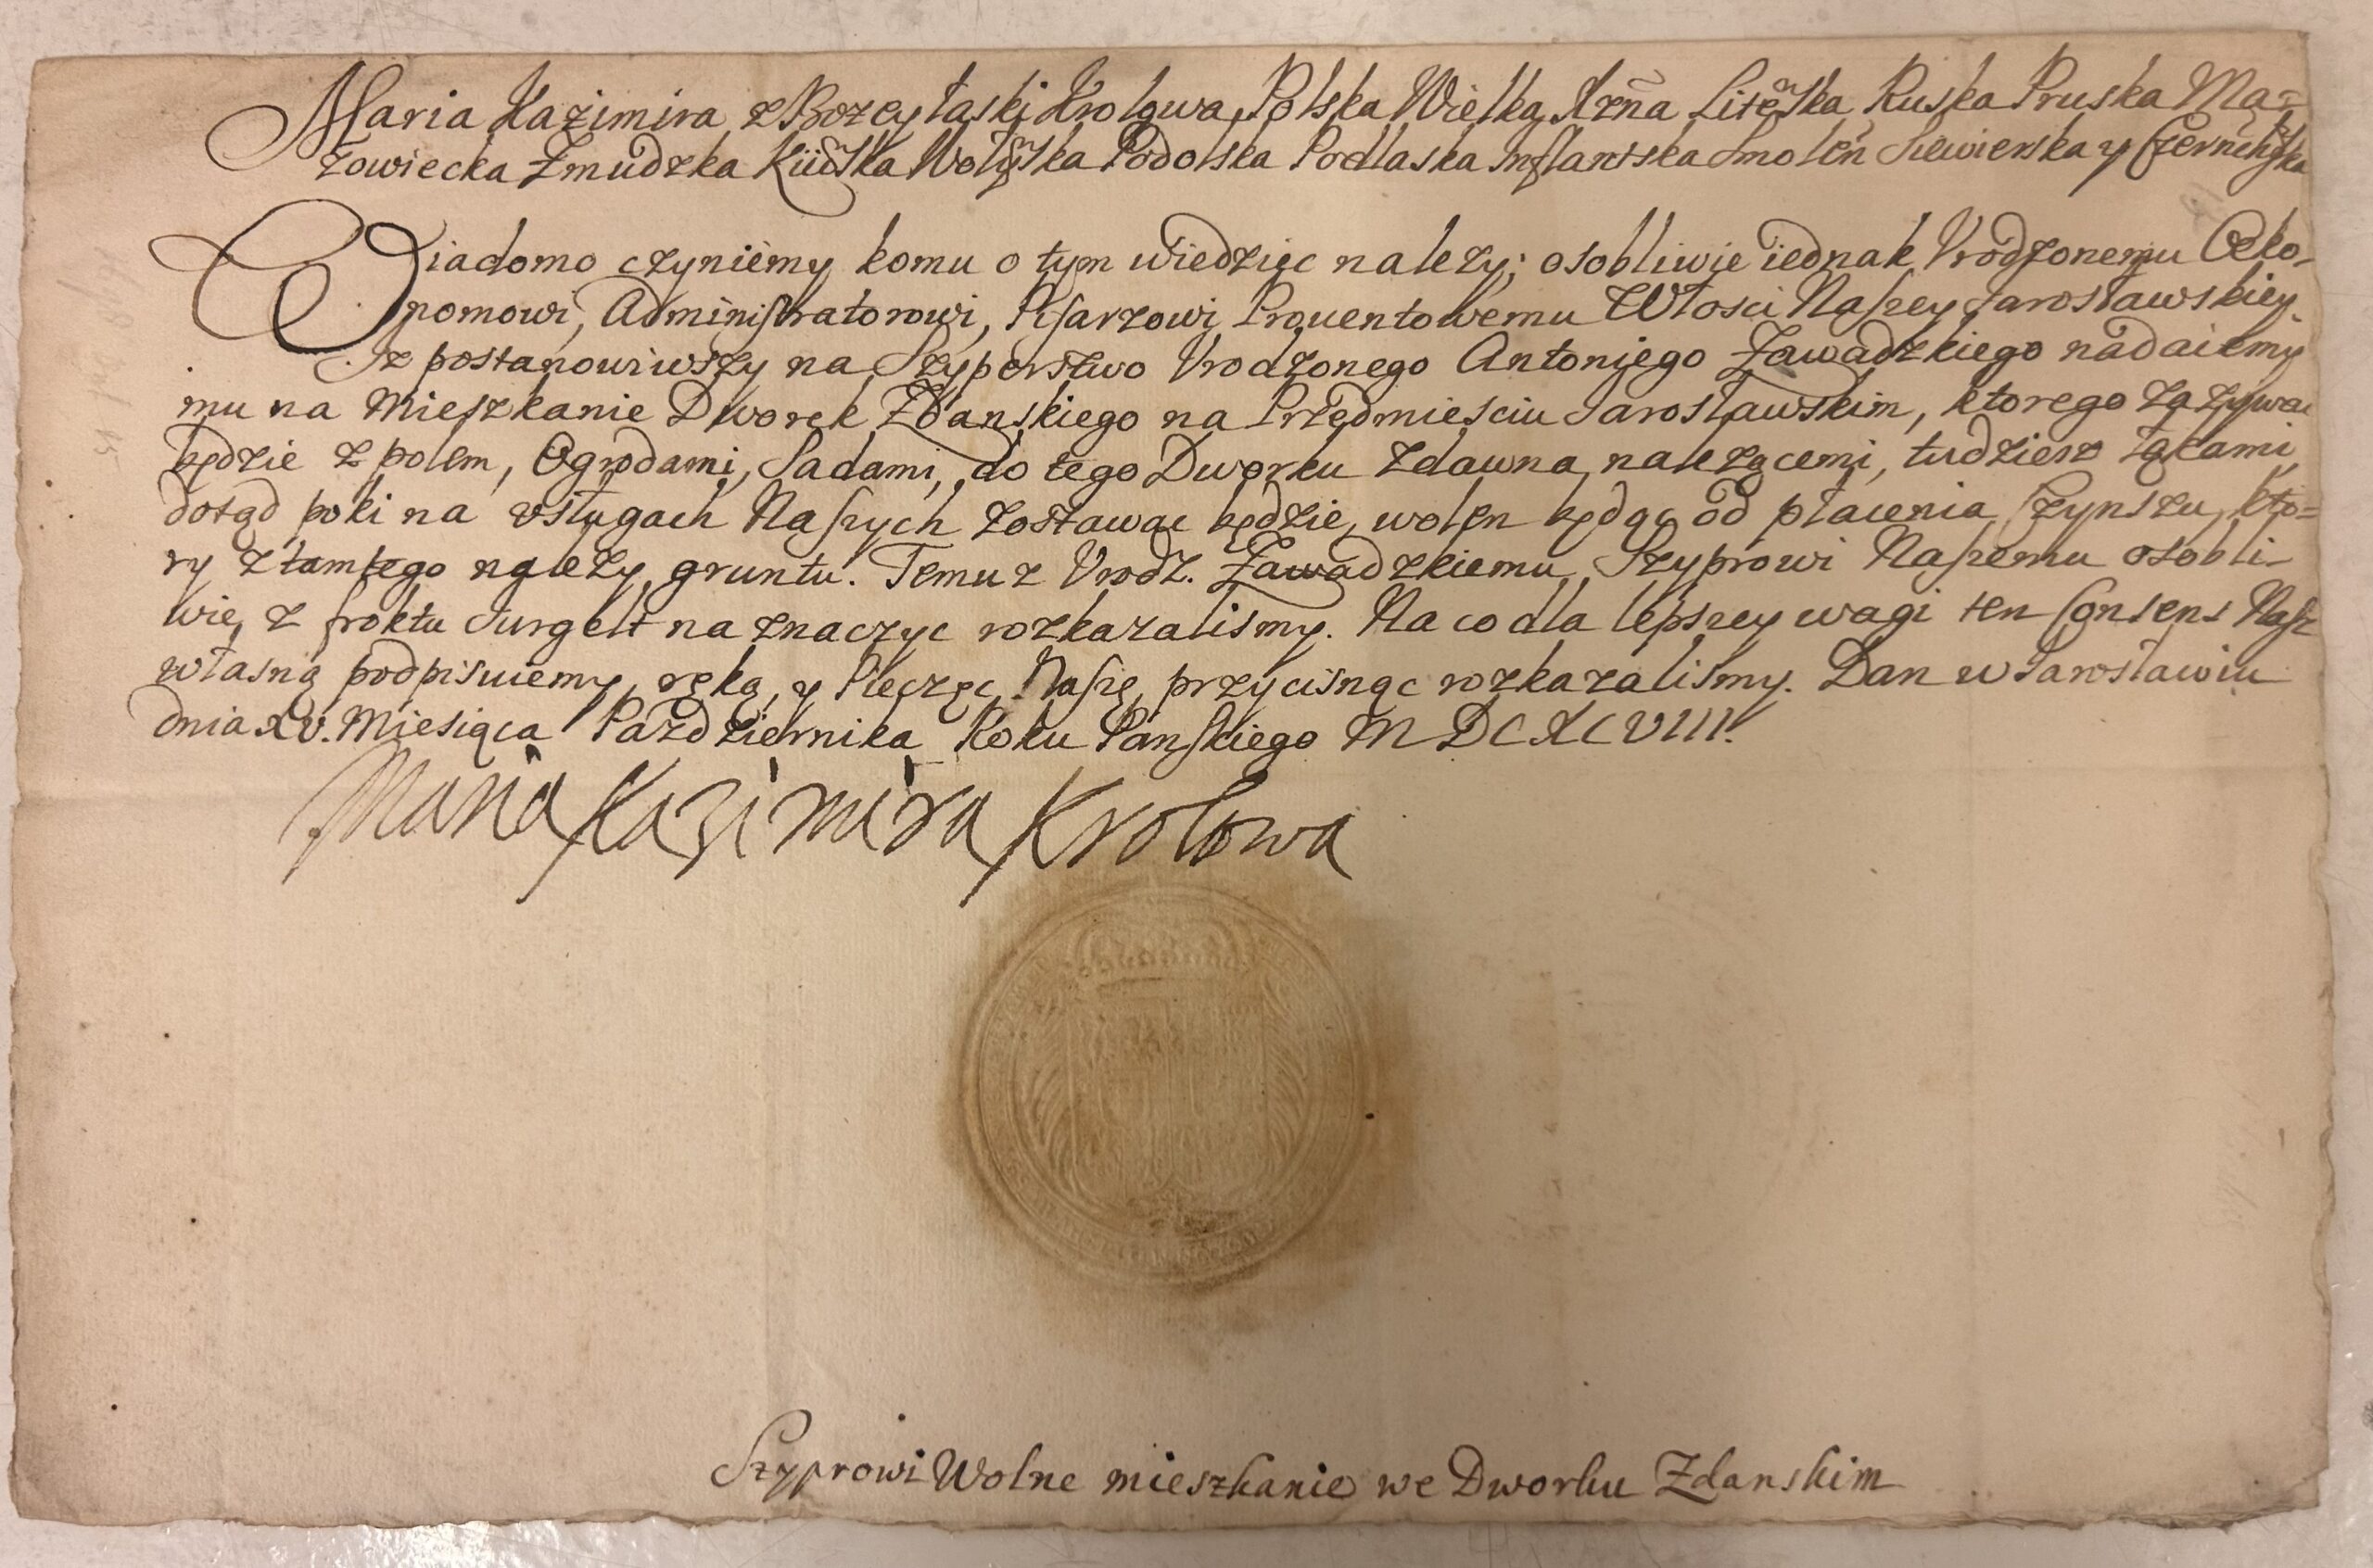 Maria Kazimira z Bozey łaski Krolowa Polska Wielka Xzña Litewska Ruska Pruska Ma=
zowiecka Zmudzka Kiiowska Wołyska Podolska Podlaska Inflantska Smoleń Siewierska y Czernichowska
Wiadomo czyniemy komu o tym wiedziec nalezy; osobliwie iednak Vrodzonemu Oeko-
nomowi, Administratorowi, Pisarzowi Prouentowemu Włosci Naszey Jarosławskiey.
Iz postanowiwszy na Szyperstwo Vrodzonego Antoniego Zawadzkiego nadaiemy
mu na Mieszkanie Dworek Zdanskiego na Przedmiesciu Jarosławskim, ktorego zazywac
będzie z polem, Ogrodami, Sadami, do tego Dworku zdawna nalezącemi, tudziesz łąkami
dotąd poki na vsługach Naszych zostawac będzie, wolen będąc od płacenia Czynszu, kto=
ry z tamtego nalezy gruntu. Temuz Vrodz. Zawadzkiemu Szyprowi Naszemu osobli-
wie, z froktu Jurgelt naznaczyc rozkazalismy. Na co dla lepszey wagi ten Consens Nasz
własną podpisuiemy ręką, y Pieczęc Naszę przycisnąc rozkazalismy. Dan w Jarosławiu
dnia XV. Miesiąca Pazdziernika Roku Panskiego MDCXCVIII.
Maria Kazimira Krolowa
Szyprowi Wolne mieszkanie we Dworku Zdanskim